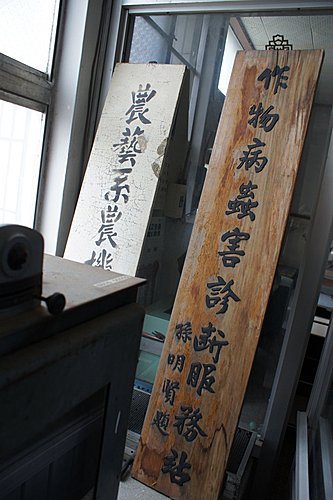 作物病蟲害診斷服務站
孫明賢題
農藝系農機